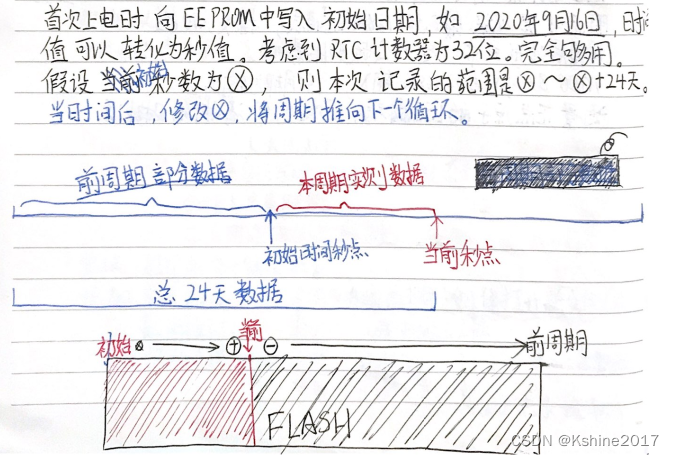 首次上电时 向EEPROM中写入 初始日期, 如 2020年9月16日, 时
值 可以 转化为秒值。考虑到 RTC 计数器为32位。完全够用。
假设 初始 秒数为ⓧ, 则本次 记录的范围是ⓧ～ⓧ+24天。
当时间后, 修改ⓧ, 将周期推向下一个循环。
前周期部分数据
本周期实测数据
初始时间秒点
当前秒点
总 24天 数据
当前
初始 ⊗ ⊕ ⊖ 前周期
FLASH
CSDN @Kshine2017